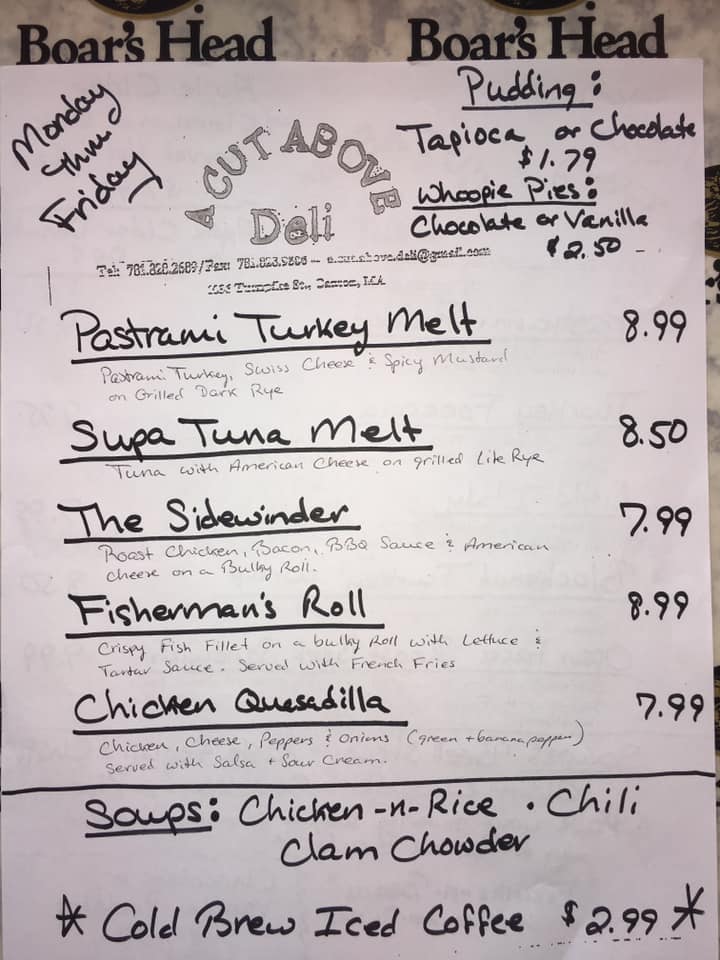 Boar's Head
Boar's Head
Monday
thru
Friday
A CUT ABOVE
Deli
Pudding:
Tapioca or Chocolate
$1.79
Whoopie Pies:
Chocolate or Vanilla
$2.50
Tel: 781.828.2689/Fax:
Pastrami Turkey Melt 8.99
Pastrami Turkey, Swiss Cheese & Spicy Mustard
on Grilled Dark Rye
Supa Tuna Melt 8.50
Tuna with American Cheese on grilled Lite Rye
The Sidewinder 7.99
Roast Chicken, Bacon, BBQ Sauce & American
cheese on a Bulky Roll.
Fisherman's Roll 8.99
Crispy Fish Fillet on a bulky Roll with Lettuce &
Tartar Sauce. Served with French Fries
Chicken Quesadilla 7.99
Chicken, Cheese, Peppers & Onions (green + banana pepper)
Served with Salsa + Sour Cream.
Soups: Chicken-n-Rice • Chili
Clam Chowder
* Cold Brew Iced Coffee $2.99 *